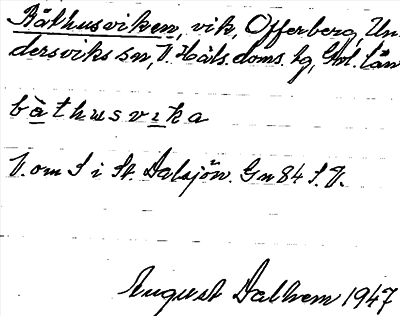 Båthusviken, vik, Offerberg, Un-
dersviks sn, V. Häls. doms. tg, Gvl. län
bàthusvika
V. om S i St. Dalsjön. Gn 84 S.V.
August Dalhem 1947